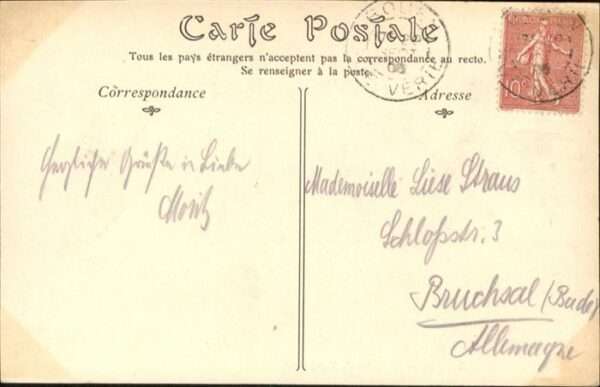 Carte Postale
Tous les pays étrangers n'acceptent pas la correspondance au recto.
Se renseigner à la poste
Correspondance
Adresse
Herzliche Grüße in Liebe
Moritz
Mademoiselle Liese Straus
Schloßstr. 3
Bruchsal (Baden)
Allemagne
10c
VERTE
08